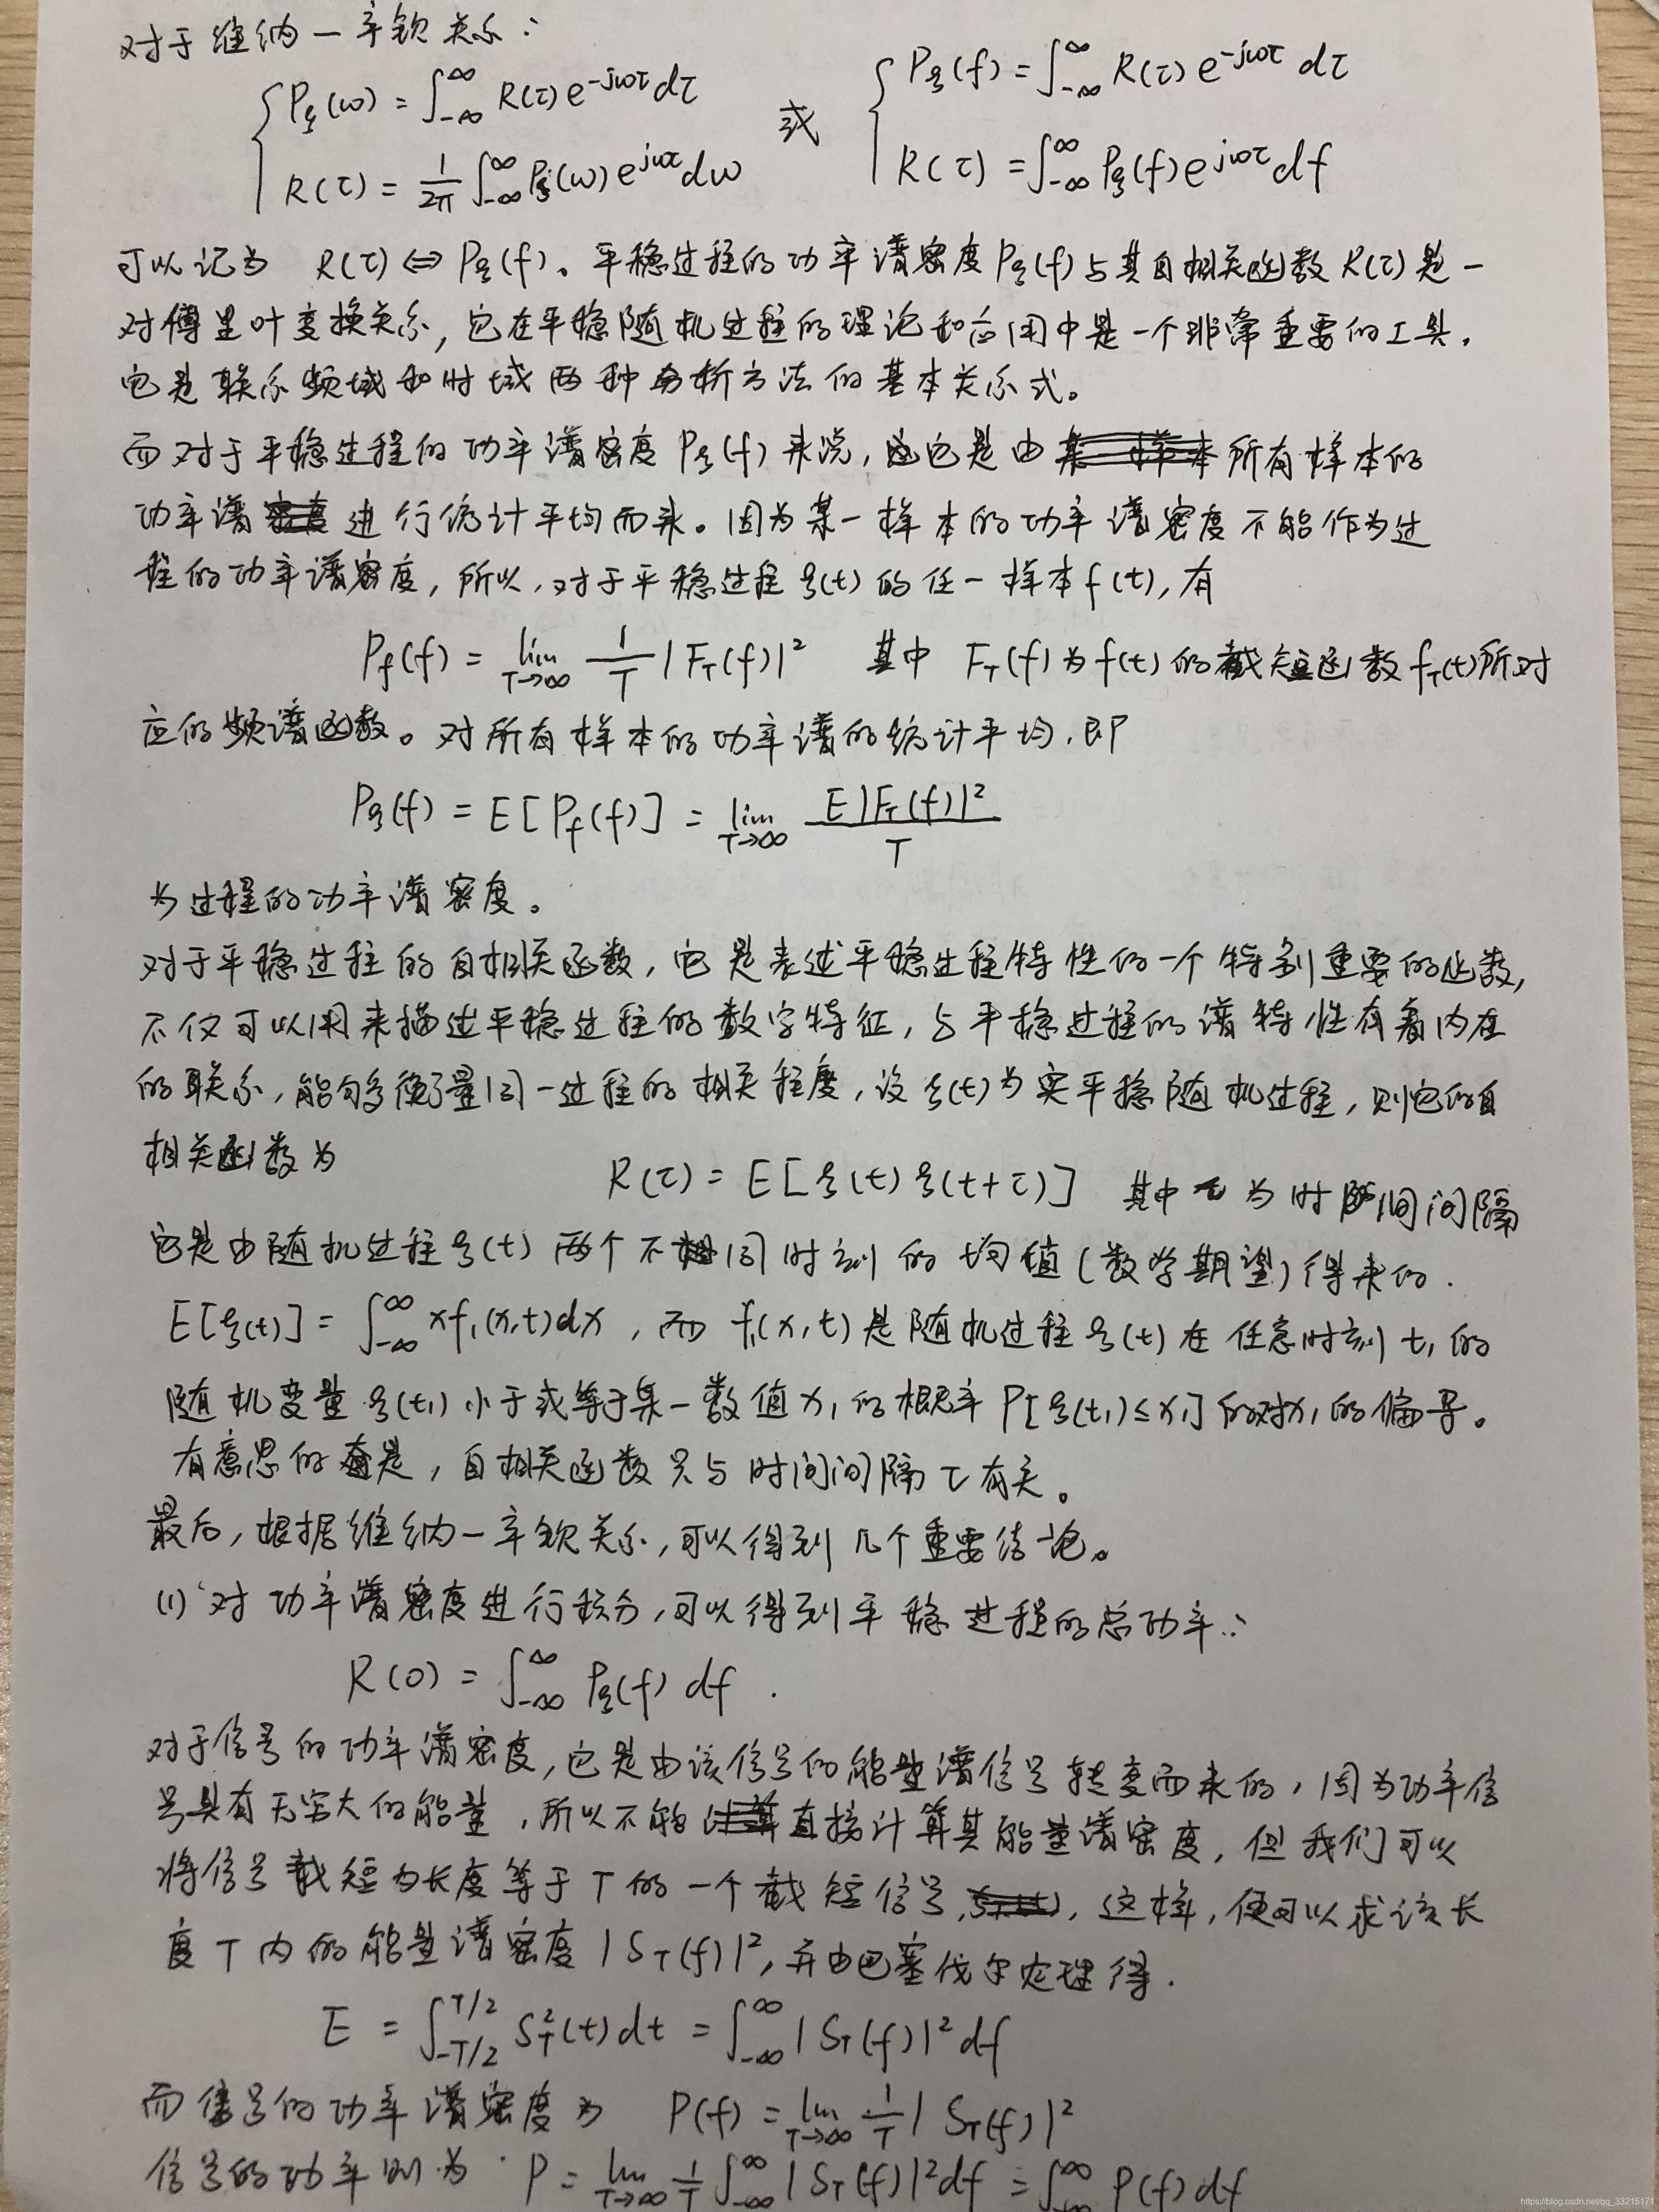 对于维纳-辛钦关系:
{ Pξ(ω) = ∫_{-∞}^{∞} R(τ) e^{-jωτ} dτ 或 { Pξ(f) = ∫_{-∞}^{∞} R(τ) e^{-jωτ} dτ
R(τ) = 1/2π ∫_{-∞}^{∞} Pξ(ω) e^{jωτ} dω R(τ) = ∫_{-∞}^{∞} Pξ(f) e^{jωτ} df
可以记为 R(τ) ⇔ Pξ(f)。平稳过程的功率谱密度 Pξ(f) 与其自相关函数 R(τ) 是一
对傅里叶变换关系, 它在平稳随机过程的理论和应用中是一个非常重要的工具,
它是联系频域和时域两种分析方法的基本关系式。
而对于平稳过程的功率谱密度 Pξ(f) 来说, 它是由所有样本的
功率谱进行统计平均而来。因为某一样本的功率谱密度不能作为过
程的功率谱密度, 所以, 对于平稳过程 ξ(t) 的任一样本 f(t), 有
P_f(f) = lim_{T→∞} 1/T |F_T(f)|² 其中 F_T(f) 为 f(t) 的截短函数 f_T(t) 所对
应的频谱函数。对所有样本的功率谱的统计平均, 即
Pξ(f) = E[P_f(f)] = lim_{T→∞} E|F_T(f)|² / T
为过程的功率谱密度。
对于平稳过程的自相关函数, 它是表述平稳过程特性的一个特别重要的函数,
不仅可以用来描述平稳过程的数字特征, 与平稳过程的谱特性有着内在
的联系, 能够衡量同一过程的相关程度, 设 ξ(t) 为实平稳随机过程, 则它的自
相关函数为
R(τ) = E[ξ(t) ξ(t+τ)] 其中 τ 为时间间隔
它是由随机过程 ξ(t) 两个不同时刻的均值(数学期望)得来的.
E[ξ(t)] = ∫_{-∞}^{∞} x f₁(x,t) dx, 而 f₁(x,t) 是随机过程 ξ(t) 在任意时刻 t₁ 的
随机变量 ξ(t₁) 小于或等于某一数值 x₁ 的概率 P[ξ(t₁) ≤ x₁] 的对 x₁ 的偏导。
有意思的是, 自相关函数只与时间间隔 τ 有关。
最后, 根据维纳-辛钦关系, 可以得到几个重要结论。
(1) 对功率谱密度进行积分, 可以得到平稳过程的总功率:
R(0) = ∫_{-∞}^{∞} Pξ(f) df .
对于信号的功率谱密度, 它是由该信号的能量谱信号转变而来的, 因为功率信
号具有无穷大的能量, 所以不能直接计算其能量谱密度, 但我们可以
将信号截短为长度等于 T 的一个截短信号, 这样, 便可以求该长
度 T 内的能量谱密度 |S_T(f)|², 并由巴塞伐尔定理得.
E = ∫_{-T/2}^{T/2} S_T²(t) dt = ∫_{-∞}^{∞} |S_T(f)|² df
而信号的功率谱密度为 P(f) = lim_{T→∞} 1/T |S_T(f)|²
信号的功率则为 P = lim_{T→∞} 1/T ∫_{-∞}^{∞} |S_T(f)|² df = ∫_{-∞}^{∞} P(f) df
https://blog.csdn.net/qq_33215171